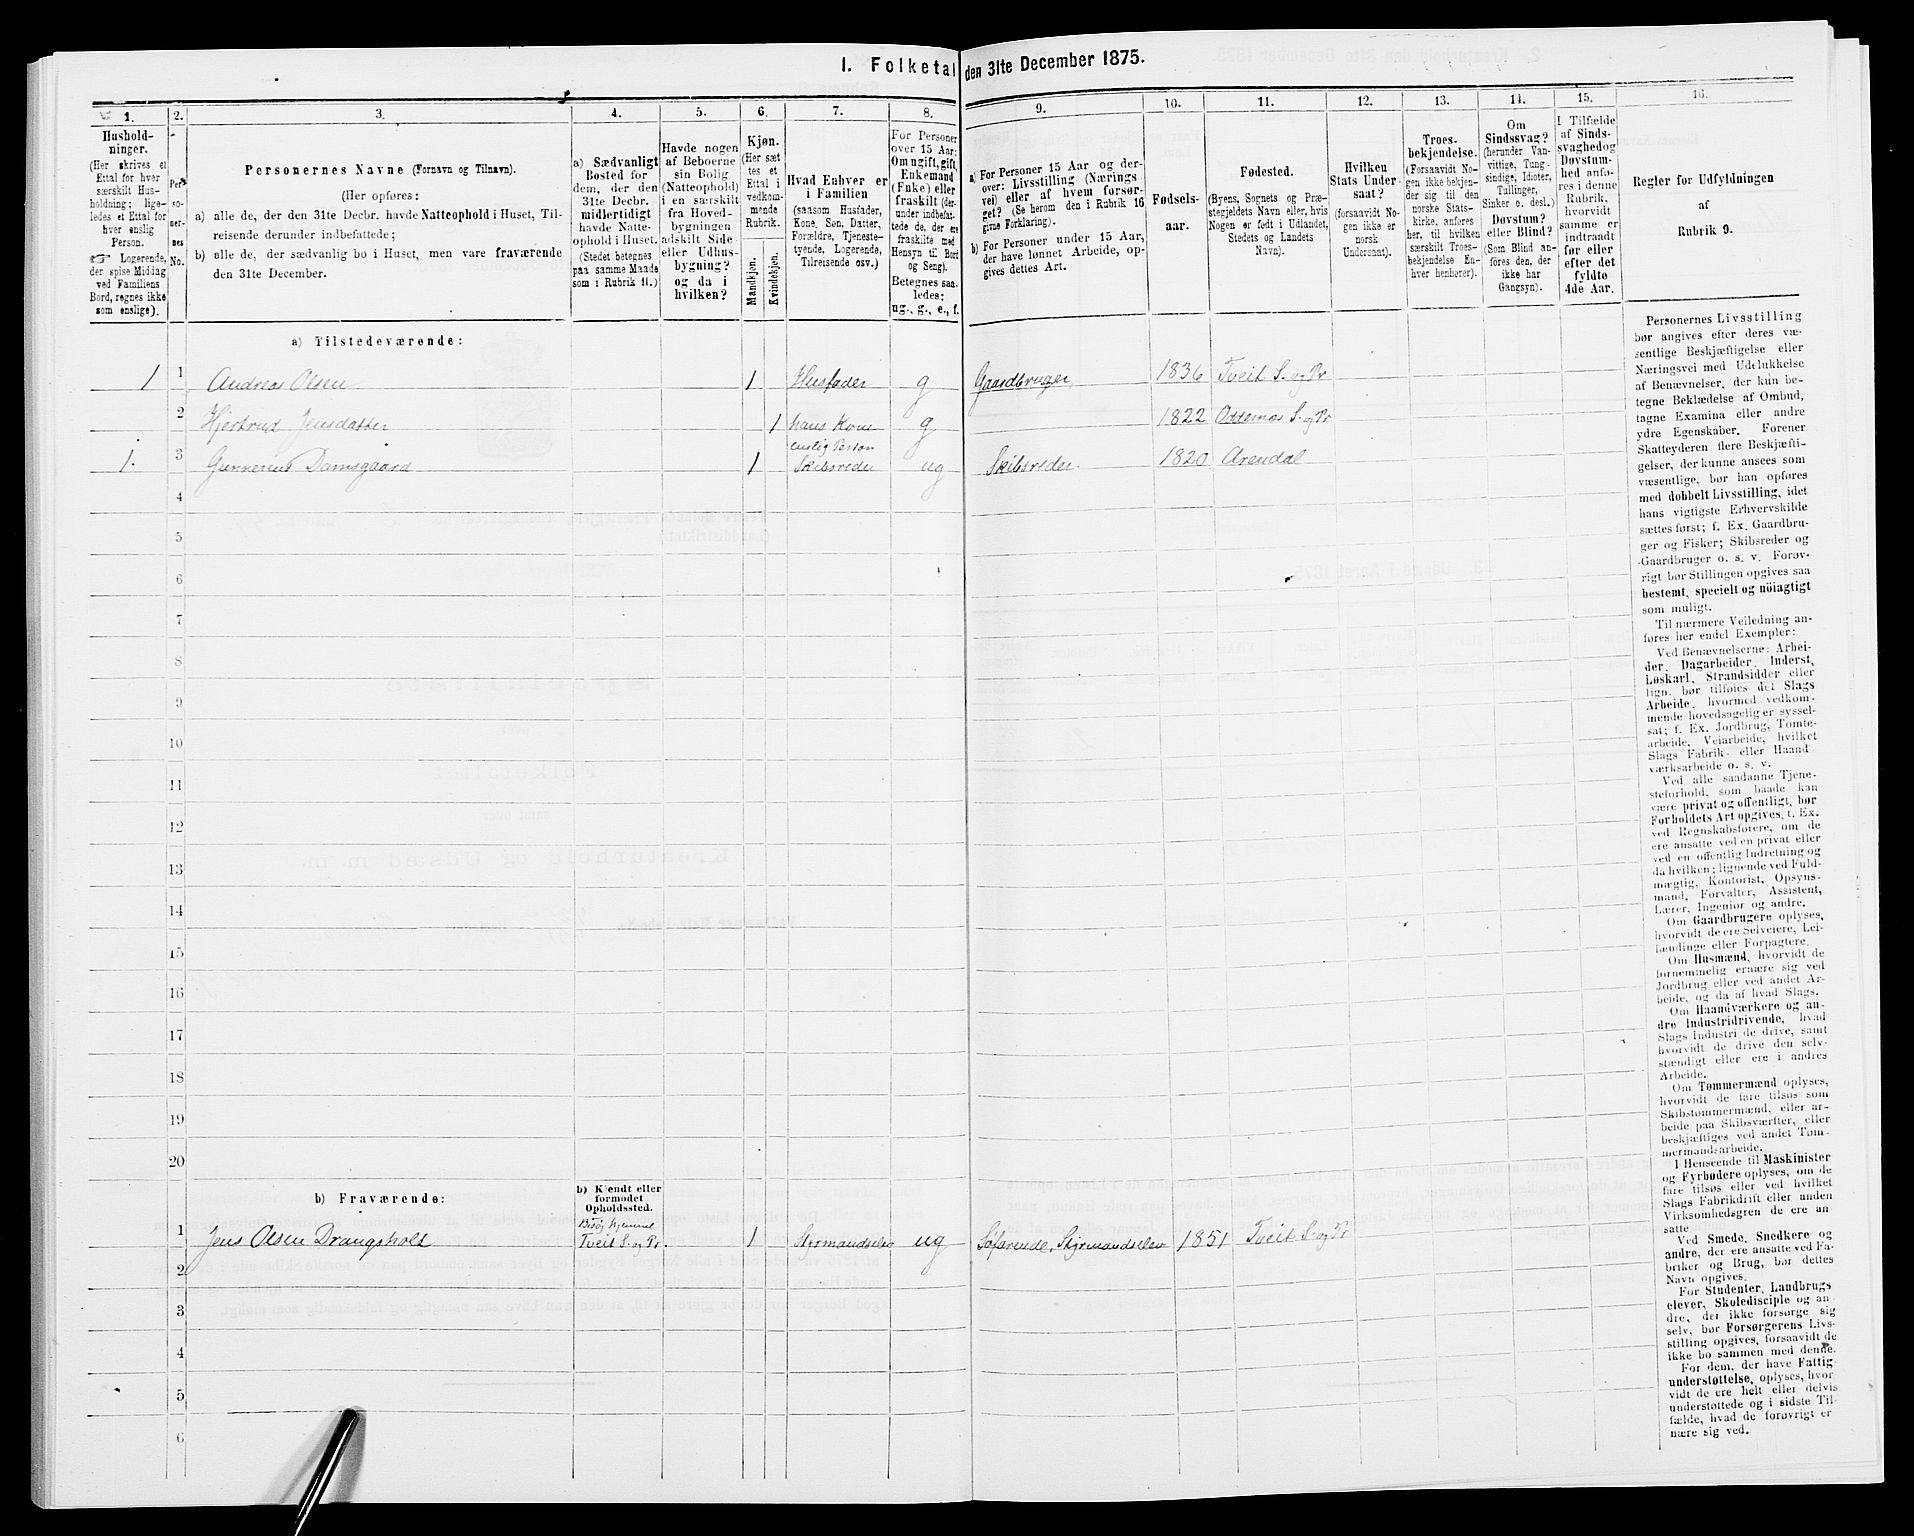 1. Folketal den 31te December 1875.
1.
Hushold-
ninger.
(Her skrives et
Ettal for hver
særskilt Hus-
holdning; lige-
ledes et Ettal for
hver enslig
Person.
☞ Logerende,
der spise Middag
ved Familiens
Bord, regnes ikke
som enslige).
2.
Per-
so-
ner-
nes
No.
3.
Personernes Navne (Fornavn og Tilnavn).
(Her opføres:
a) alle de, der den 31te Decbr. havde Natteophold i Huset, Til-
reisende derunder indbefattede;
b) alle de, der sædvanlig bo i Huset, men vare fraværende
den 31te December.
4.
a) Sædvanligt
Bosted for
dem, der den
31te Decbr.
midlertidigt
havde Natte-
ophold i Huset.
(Stedet betegnes
paa samme Maade
som i Rubrik 11.)
5.
Havde nogen
af Beboerne
sin Bolig
(Natteophold)
i en særskilt
fra Hoved-
bygningen
adskilt Side-
eller Udhus-
bygning?
og da i
hvilken?
6.
Kjøn.
(Her sæt-
tes et
Ettal i
vedkom-
mende
Rubrik.
Mandkjøn.
Kvindekjøn.
7.
Hvad Enhver er
i Familien
(saasom Husfader,
Kone, Søn, Datter,
Forældre, Tjeneste-
tyende, Logerende,
Tilreisende osv.)
8.
For Personer
over 15 Aar:
Om ugift, gift,
Enkemand
(Enke) eller
fraskilt (der-
under indbefat-
tede de, der ere
fraskilte med
Hensyn til Bord
og Seng).
Betegnes saa-
ledes:
ug., g., e., f.
9.
a) For Personer 15 Aar og der-
over: Livsstilling (Nærings-
vei) eller af hvem forsør-
get? (Se herom den i Rubrik 16
givne Forklaring).
b) For Personer under 15 Aar,
der have lønnet Arbeide, op-
gives dettes Art.
10.
Fødsels-
aar.
11.
Fødested.
(Byens, Sognets og Præ-
stegjeldets Navn eller, hvis
Nogen er født i Udlandet,
Stedets og Landets
Navn).
12.
Hvilken
Stats Under-
saat?
(forsaavidt No-
gen ikke er
norsk
Undersaat).
13.
Troes-
bekjendelse.
(Forsaavidt No-
gen ikke bekjen-
der sig til den
norske Stats-
kirke, anføres
her, til hvilken
særskilt Troes-
bekjendelse En-
hver henhører).
14.
Om
Sindssvag?
(herunder Van-
vittige, Tung-
sindige, Idioter,
Tullinger,
Sinker o. desl.)
Døvstum?
eller Blind?
(Som Blind an-
føres den, der
ikke har
Gangsyn).
15.
I Tilfælde
af Sinds-
svaghed og
Døvstum-
hed anfø-
res i denne
Rubrik,
hvorvidt
samme er
indtraadt
før eller
efter det
fyldte
4de Aar.
16.
Regler for Udfyldningen
af
Rubrik 9.
a) Tilstedeværende:
1 1 Andreas Olsen 1 Husfader g Gaardbruger 1836 Tveit S. og Pr
2 Hjertrud Jensdatter 1 hans Kone g 1822 Oddernes S. og Pr
enslig Person
1. 3 Gunnerius Damsgaard 1 Skibsreder ug Skibsreder 1820 Arendal
4
5
6
7
8
9
10
11
12
13
14
15
16
17
18
19
20
b) Fraværende:
b) Kjendt eller
formodet
Opholdssted.
1 Jens Olsen Drangsholt Tveit S. og Pr. 1 Styrmandselev ug Søfarende, Styrmandselev 1851 Tveit S. og Pr
2
3
4
5
6
Personernes Livsstilling
bør angives efter deres væ-
sentlige Beskjæftigelse eller
Næringsvei med Udelukkelse
af Benævnelser, der kun be-
tegne Beklædelse af Ombud,
tagne Examina eller andre
ydre Egenskaber. Forener
Skatteyderen flere Beskjæfti-
gelser, der kunne ansees som
væsentlige, bør han opføres
med dobbelt Livsstilling, idet
hans vigtigste Erhvervskilde
sættes først; f. Ex. Gaardbru-
ger og Fisker; Skibsreder og
Gaardbruger o. s. v. Forøv-
rigt bør Stillingen opgives saa
bestemt, specielt og nöiagtigt
som muligt.
Til nærmere Veiledning an-
føres her endel Exempler:
Ved Benævnelserne: Arbei-
der, Dagarbeider, Inderst,
Løskarl, Strandsidder eller
lign. bør tilføies det Slags
Arbeide, hvormed vedkom-
mende hovedsagelig er syssel-
sat; f. Ex. Jordbrug, Tomte-
arbeide, Veiarbeide, hvilket
Slags Fabrik- eller Haand-
værksarbeide o. s. v.
Ved alle saadanne Tjene-
steforhold, som baade kan
være privat og offentligt, bør
Forholdets Art opgives, t. Ex.
ved Regnskabsførere, om de
ere ansatte ved en privat eller
ved en offentlig Indretning og
da hvilken; lignende ved Fuld-
mægtig, Kontorist, Opsyns-
mand, Forvalter, Assistent,
Lærer, Ingeniør og andre.
Om Gaardbrugere oplyses,
hvorvidt de ere Selveiere, Lei-
lændinge eller Forpagtere.
Om Husmænd, hvorvidt de
fornemmelig ernære sig ved
Jordbrug eller ved andet Ar-
beide, og da af hvad Slags.
Om Haandværkere og an-
dre Industridrivende, hvad
Slags Industri de drive, samt
hvorvidt de drive den selv-
stændigt eller ere i andres
Arbeide.
Om Tømmermænd oplyses,
hvorvidt de fare tilsøs som
Skibstømmermænd, eller ar-
beide paa Skibsværfter, eller
beskjæftiges ved andet Tøm-
mermandsarbeide.
I Henseende til Maskinister
og Fyrbødere oplyses, om de
fare tilsøs eller ved hvilket
Slags Fabrikdrift eller anden
Virksomhedsgren de ere an-
satte.
Ved Smede, Snedkere og
andre, der ere ansatte ved Fa-
briker og Brug, bør dettes
Navn opgives.
For Studenter, Landbrugs-
elever, Skoledisciple og an-
dre, der ikke forsørge sig
selv, bør Forsørgerens Livs-
stilling opgives, forsaavidt de
ikke bo sammen med denne.
For dem, der have Fattig-
understøttelse, oplyses, hvor-
vidt de ere helt eller delvis
understøttede og i sidste Til-
fælde, hvad de forøvrigt er-
nære sig ved.